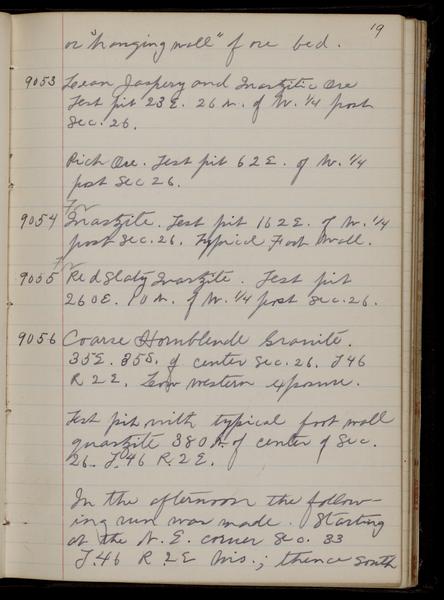 19
or "hanging wall" of ore bed.
9053 Lean Jaspery and Quartzitic Ore
Test pit 23 E. 26 N. of W. 1/4 post
Sec. 26.
Rich Ore. Test pit 62 E. of W. 1/4
post Sec 26.
9054 Quartzite. Test pit 162 E. of W. 1/4
post Sec. 26. Typical Foot Wall.
9055 Red Slaty Quartzite. Test pit
260 E. 10 N. of W. 1/4 post Sec. 26.
9056 Coarse Hornblende Granite.
35 E. 35 S. of center Sec. 26. T.46
R 2 E. Low western exposure.
Test pit with typical foot wall
quartzite 380 N. of center of Sec.
26. T.46 R.2 E.
In the afternoon the follow-
ing run was made. Starting
at the N. E. corner Sec. 33
T.46 R 2 E Wis.; thence South